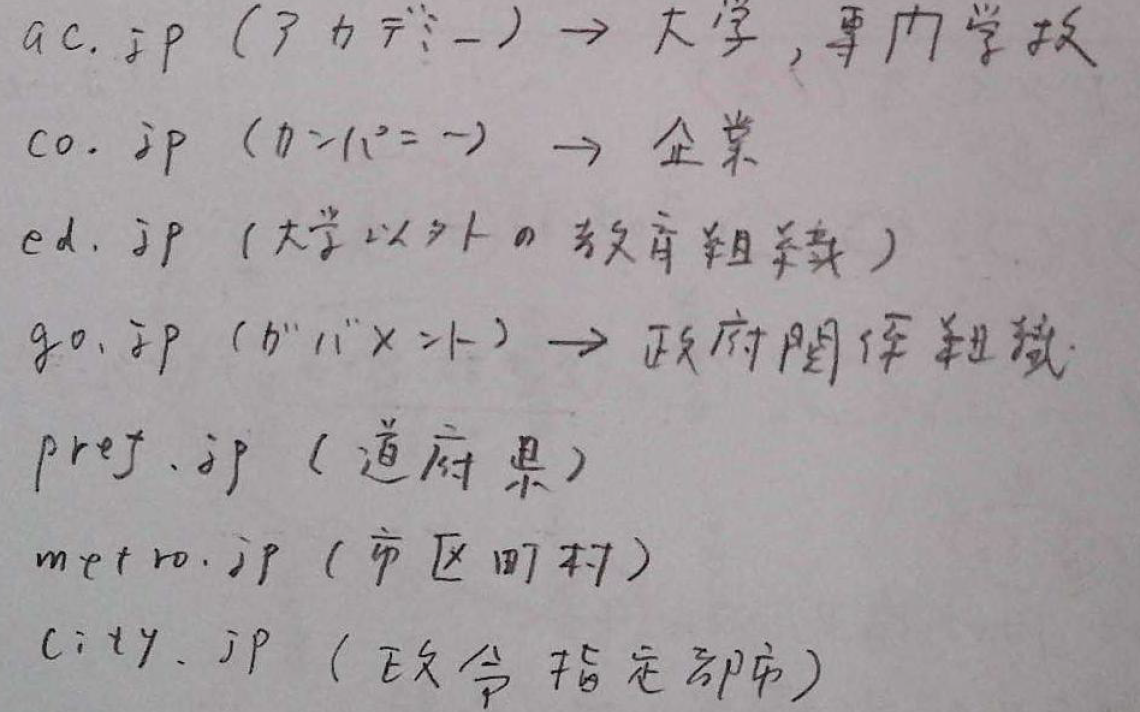 ac.jp (アカデミー) → 大学,専門学校
co.jp (カンパニー) → 企業
ed.jp (大学以外の教育組織)
go.jp (ガバメント) → 政府関係組織
pref.jp (道府県)
metro.jp (市区町村)
city.jp (政令指定都市)